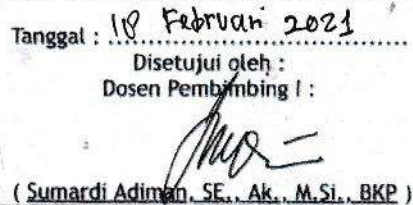 Tanggal : 18 Februari 2021
Disetujui oleh :
Dosen Pembimbing I :
( Sumardi Adiman, SE., Ak., M.Si., BKP )